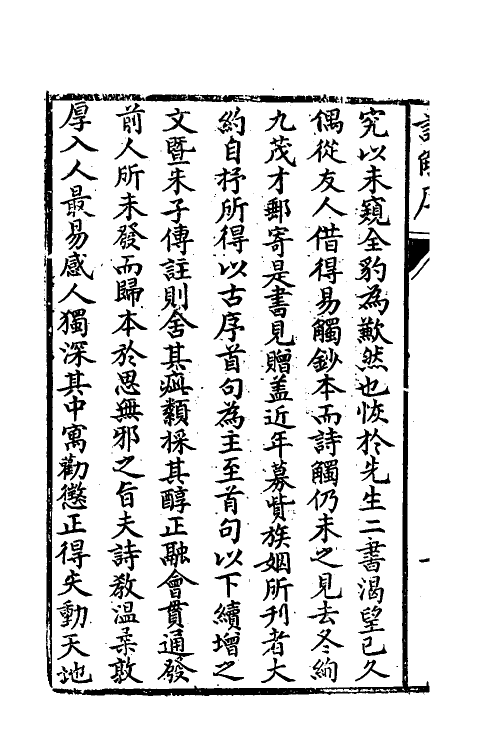 究以未窺全豹為歉然也恢於先生二書渴望已久
偶從友人借得易觸鈔本而詩觸仍未之見去冬絢
九茂才郵寄是書見贈盖近年募貲族姻所刊者大
約自抒所得以古序首句為主至首句以下續增之
文暨朱子傳註則舍其疵纇採其醇正融會貫通發
前人所未發而歸本於思無邪之旨夫詩教温柔敦
厚入人最易感人獨深其中寓勸懲正得失動天地